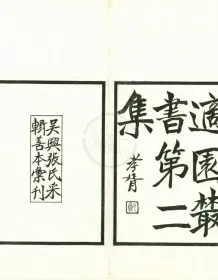 適園叢
書第二
集
孝胥
吳興張氏采
輯善本彙刊